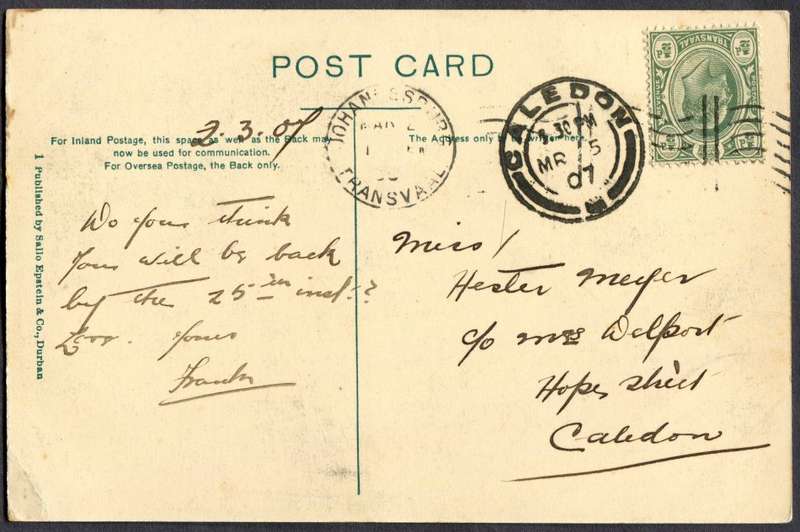 POST CARD
2.3.07
For Inland Postage, this space as well as the Back may
now be used for communication.
For Oversea Postage, the Back only.
The Address only be written here.
1 Published by Sallo Epstein & Co., Durban
JOHANNESBURG
MAR 2
TRANSVAAL
CALEDON
30 PM
MR 5
07
TRANSVAAL
½D
Do you think
you will be back
by the 25 inst.?
yours
Frank
Miss/
Hester Meyer
c/o Mrs Delport
Hope Street
Caledon